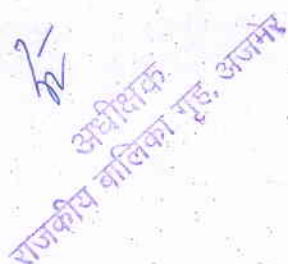 अधीक्षक
राजकीय बालिका गृह, अजमेर